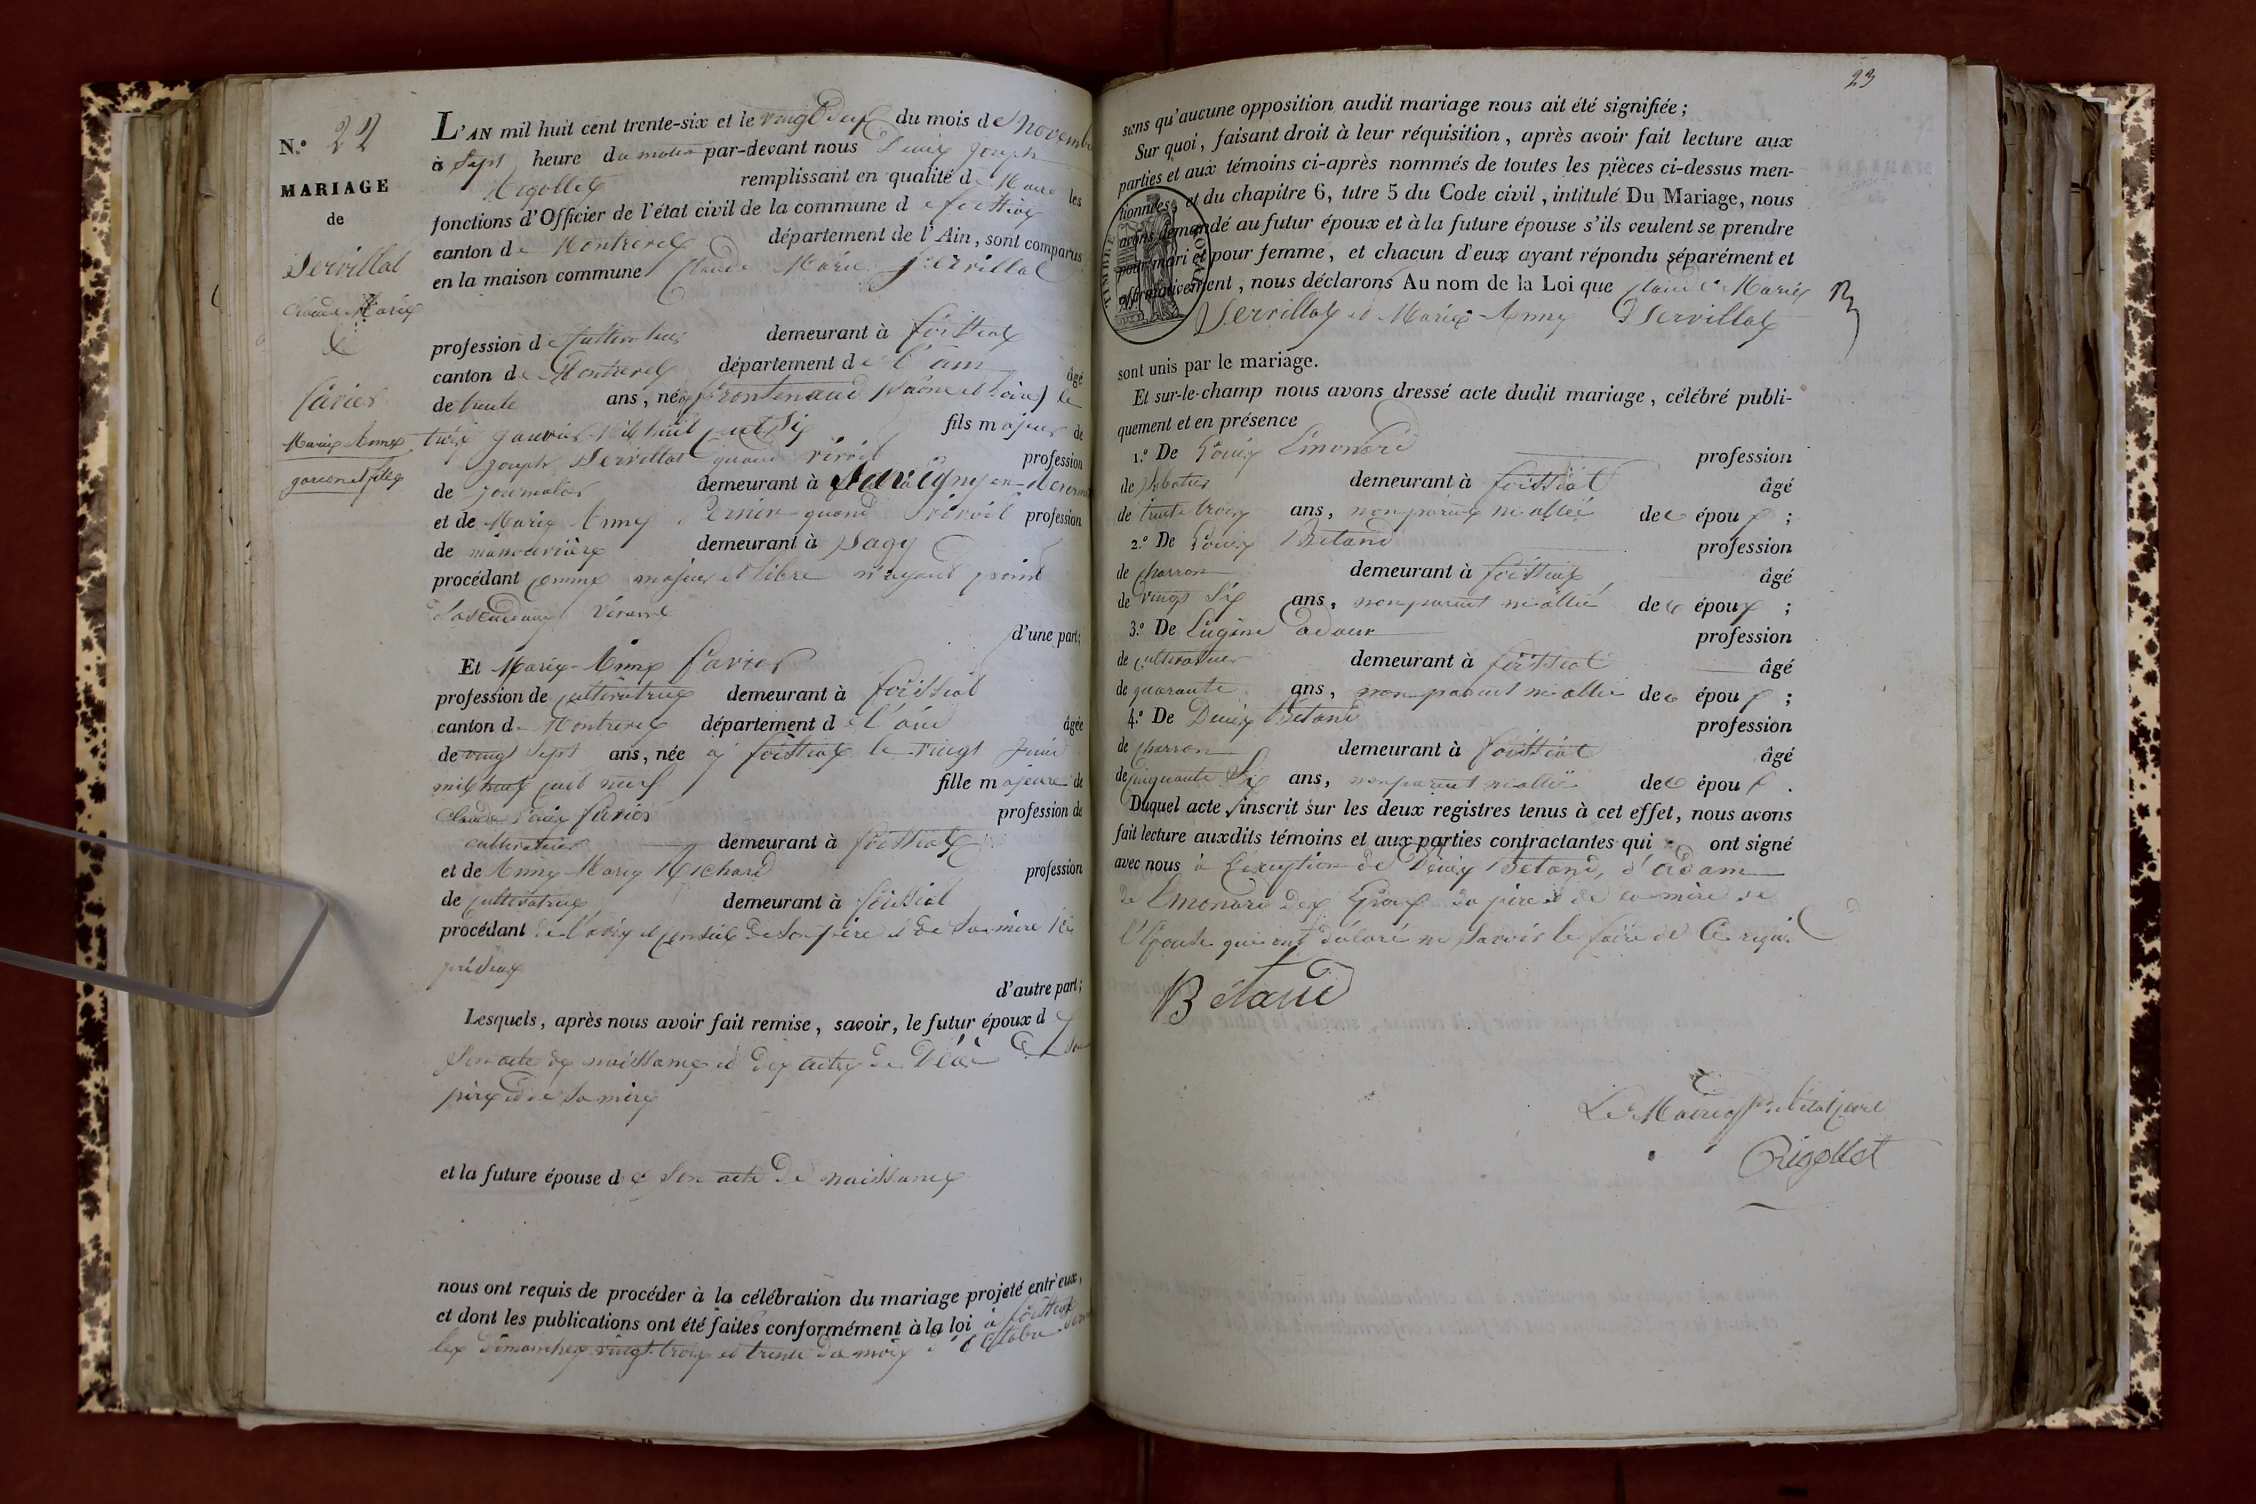 N.º 22
MARIAGE
de
Servillat
Claude Marie
&
Favier
Marie Anne
garçon et fille
L'AN mil huit cent trente-six et le vingt deux du mois de novembre
à sept heure du matin par-devant nous Denis Joseph
Rigollet remplissant en qualité de Maire les
fonctions d'Officier de l'état civil de la commune de foissiat
canton de Montrevel département de l'Ain, sont comparus
en la maison commune Claude Marie Servillat
profession de cultivateur demeurant à foissiat
canton de Montrevel département de l'ain âgé
de trente ans, né à frontenaud (Saône et Loire) le
janvier mil huit cent six fils majeur de
joseph Servillat quand vivoit profession
de journalier demeurant à Savigny en
et de Marie Anne quand vivoit profession
de manouvrière demeurant à Sagy
procédant comme majeur et libre n'ayant point
d'ascendans vivant
d'une part;
Et Marie-Anne favier
profession de cultivatrice demeurant à foissiat
canton de Montrevel département de l'ain âgée
de vingt sept ans, née à foissiat le vingt juin
mil huit cent neuf fille majeure de
Claude Louis favier profession de
cultivateur demeurant à foissiat
et de Anne Marie Richard profession
de cultivatrice demeurant à foissiat
procédant de l'avis et conseil de son père et de sa mère ici
présens
d'autre part;
Lesquels, après nous avoir fait remise, savoir, le futur époux d
son acte de naissance et des actes de décès de son
père et de sa mère
et la future épouse de son acte de naissance
nous ont requis de procéder à la célébration du mariage projeté entr'eux,
et dont les publications ont été faites conformément à la loi à foissiat
les dimanches vingt trois et trente du mois d'octobre
23
sans qu'aucune opposition audit mariage nous ait été signifiée;
Sur quoi, faisant droit à leur réquisition, après avoir fait lecture aux
parties et aux témoins ci-après nommés de toutes les pièces ci-dessus men-
tionnées, et du chapitre 6, titre 5 du Code civil, intitulé Du Mariage, nous
avons demandé au futur époux et à la future épouse s'ils veulent se prendre
pour mari et pour femme, et chacun d'eux ayant répondu séparément et
affirmativement, nous déclarons Au nom de la Loi que Claude Marie
Servillat et Marie-Anne Servillat
TIMBRE ROYAL
sont unis par le mariage.
Et sur-le-champ nous avons dressé acte dudit mariage, célébré publi-
quement et en présence
1.º De Louis Emonard profession
de sabotier demeurant à foissiat âgé
de trente trois ans, non parent ni allié des époux;
2.º De Louis Betand profession
de charron demeurant à foissiat âgé
de vingt six ans, non parent ni allié des époux;
3.º De Eugène adam profession
de cultivateur demeurant à foissiat âgé
de quarante ans, non parent ni allié des époux;
4.º De Denis Betand profession
de charron demeurant à foissiat âgé
de cinquante six ans, non parent ni allié des époux.
Duquel acte, inscrit sur les deux registres tenus à cet effet, nous avons
fait lecture auxdits témoins et aux parties contractantes qui ont signé
avec nous à l'exception de Denis Betand, d'adam
de Emonard des Epoux du père et de la mère de
l'Epouse qui ont déclaré ne savoir le faire de ce requis
Betand
Le Maire de l'état civil
Rigollet